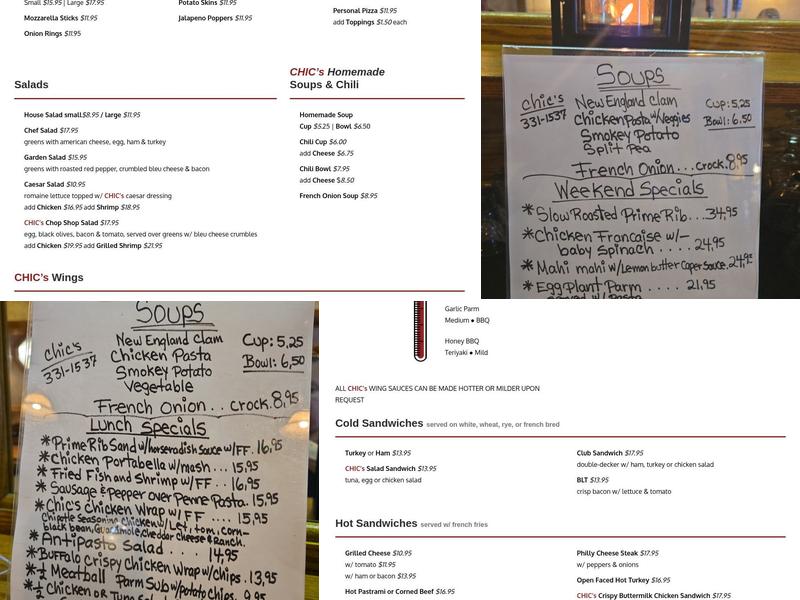 Small $15.95 | Large $17.95
Mozzarella Sticks $11.95
Onion Rings $11.95
Potato Skins $11.95
Jalapeno Poppers $11.95
Personal Pizza $11.95
add Toppings $1.50 each
Salads
House Salad small$8.95 / large $11.95
Chef Salad $17.95
greens with american cheese, egg, ham & turkey
Garden Salad $15.95
greens with roasted red pepper, crumbled bleu cheese & bacon
Caesar Salad $10.95
romaine lettuce topped w/ CHIC's caesar dressing
add Chicken $16.95 add Shrimp $18.95
CHIC's Chop Shop Salad $17.95
egg, black olives, bacon & tomato, served over greens w/ bleu cheese crumbles
add Chicken $19.95 add Grilled Shrimp $21.95
CHIC's Wings
CHIC's Homemade
Soups & Chili
Homemade Soup
Cup $5.25 | Bowl $6.50
Chili Cup $6.00
add Cheese $6.75
Chili Bowl $7.95
add Cheese $8.50
French Onion Soup $8.95
Soups
chic's
331-1537
New England Clam
Chicken Pasta w/Veggies
Smokey Potato
Split Pea
Cup: 5,25
Bowl: 6,50
French Onion... crock. 8,95
Weekend Specials
* Slow Roasted Prime Rib... 34,95
* Chicken Francaise w/-
baby Spinach .... 24,95
* Mahi mahi w/Lemon butter Caper Sauce. 24,95
* Egg Plant Parm .... 21,95
Served w/ Pasta
Soups
chic's
331-1537
New England Clam
Chicken Pasta
Smokey Potato
Vegetable
Cup: 5,25
Bowl: 6,50
French Onion.. crock. 8,95
Lunch Specials
* Prime Rib Sand w/horseradish Sauce w/FF. 16,95
* Chicken Portabella w/mash... 15,95
* Fried Fish and Shrimp w/FF.. 16,95
* Sausage & Pepper over Penne Pasta. 15,95
* Chic's Chicken Wrap w/FF .... 15,95
Chipotle Seasoning Chicken w/Let, tom, corn-
black bean, Guacamole, cheddar cheese & Ranch.
* Antipasto Salad .... 14,95
* Buffalo Crispy Chicken Wrap w/chips. 13,95
* ½ Meatball Parm Sub w/potato chips. 9,95
* ½ Chicken or Tuna
Garlic Parm
Medium • BBQ
Honey BBQ
Teriyaki • Mild
ALL CHIC's WING SAUCES CAN BE MADE HOTTER OR MILDER UPON
REQUEST
Cold Sandwiches served on white, wheat, rye, or french bred
Turkey or Ham $13.95
CHIC's Salad Sandwich $13.95
tuna, egg or chicken salad
Club Sandwich $17.95
double-decker w/ ham, turkey or chicken salad
BLT $13.95
crisp bacon w/ lettuce & tomato
Hot Sandwiches served w/ french fries
Grilled Cheese $10.95
w/ tomato $11.95
w/ ham or bacon $13.95
Hot Pastrami or Corned Beef $16.95
Philly Cheese Steak $17.95
w/ peppers & onions
Open Faced Hot Turkey $16.95
CHIC's Crispy Buttermilk Chicken Sandwich $17.95